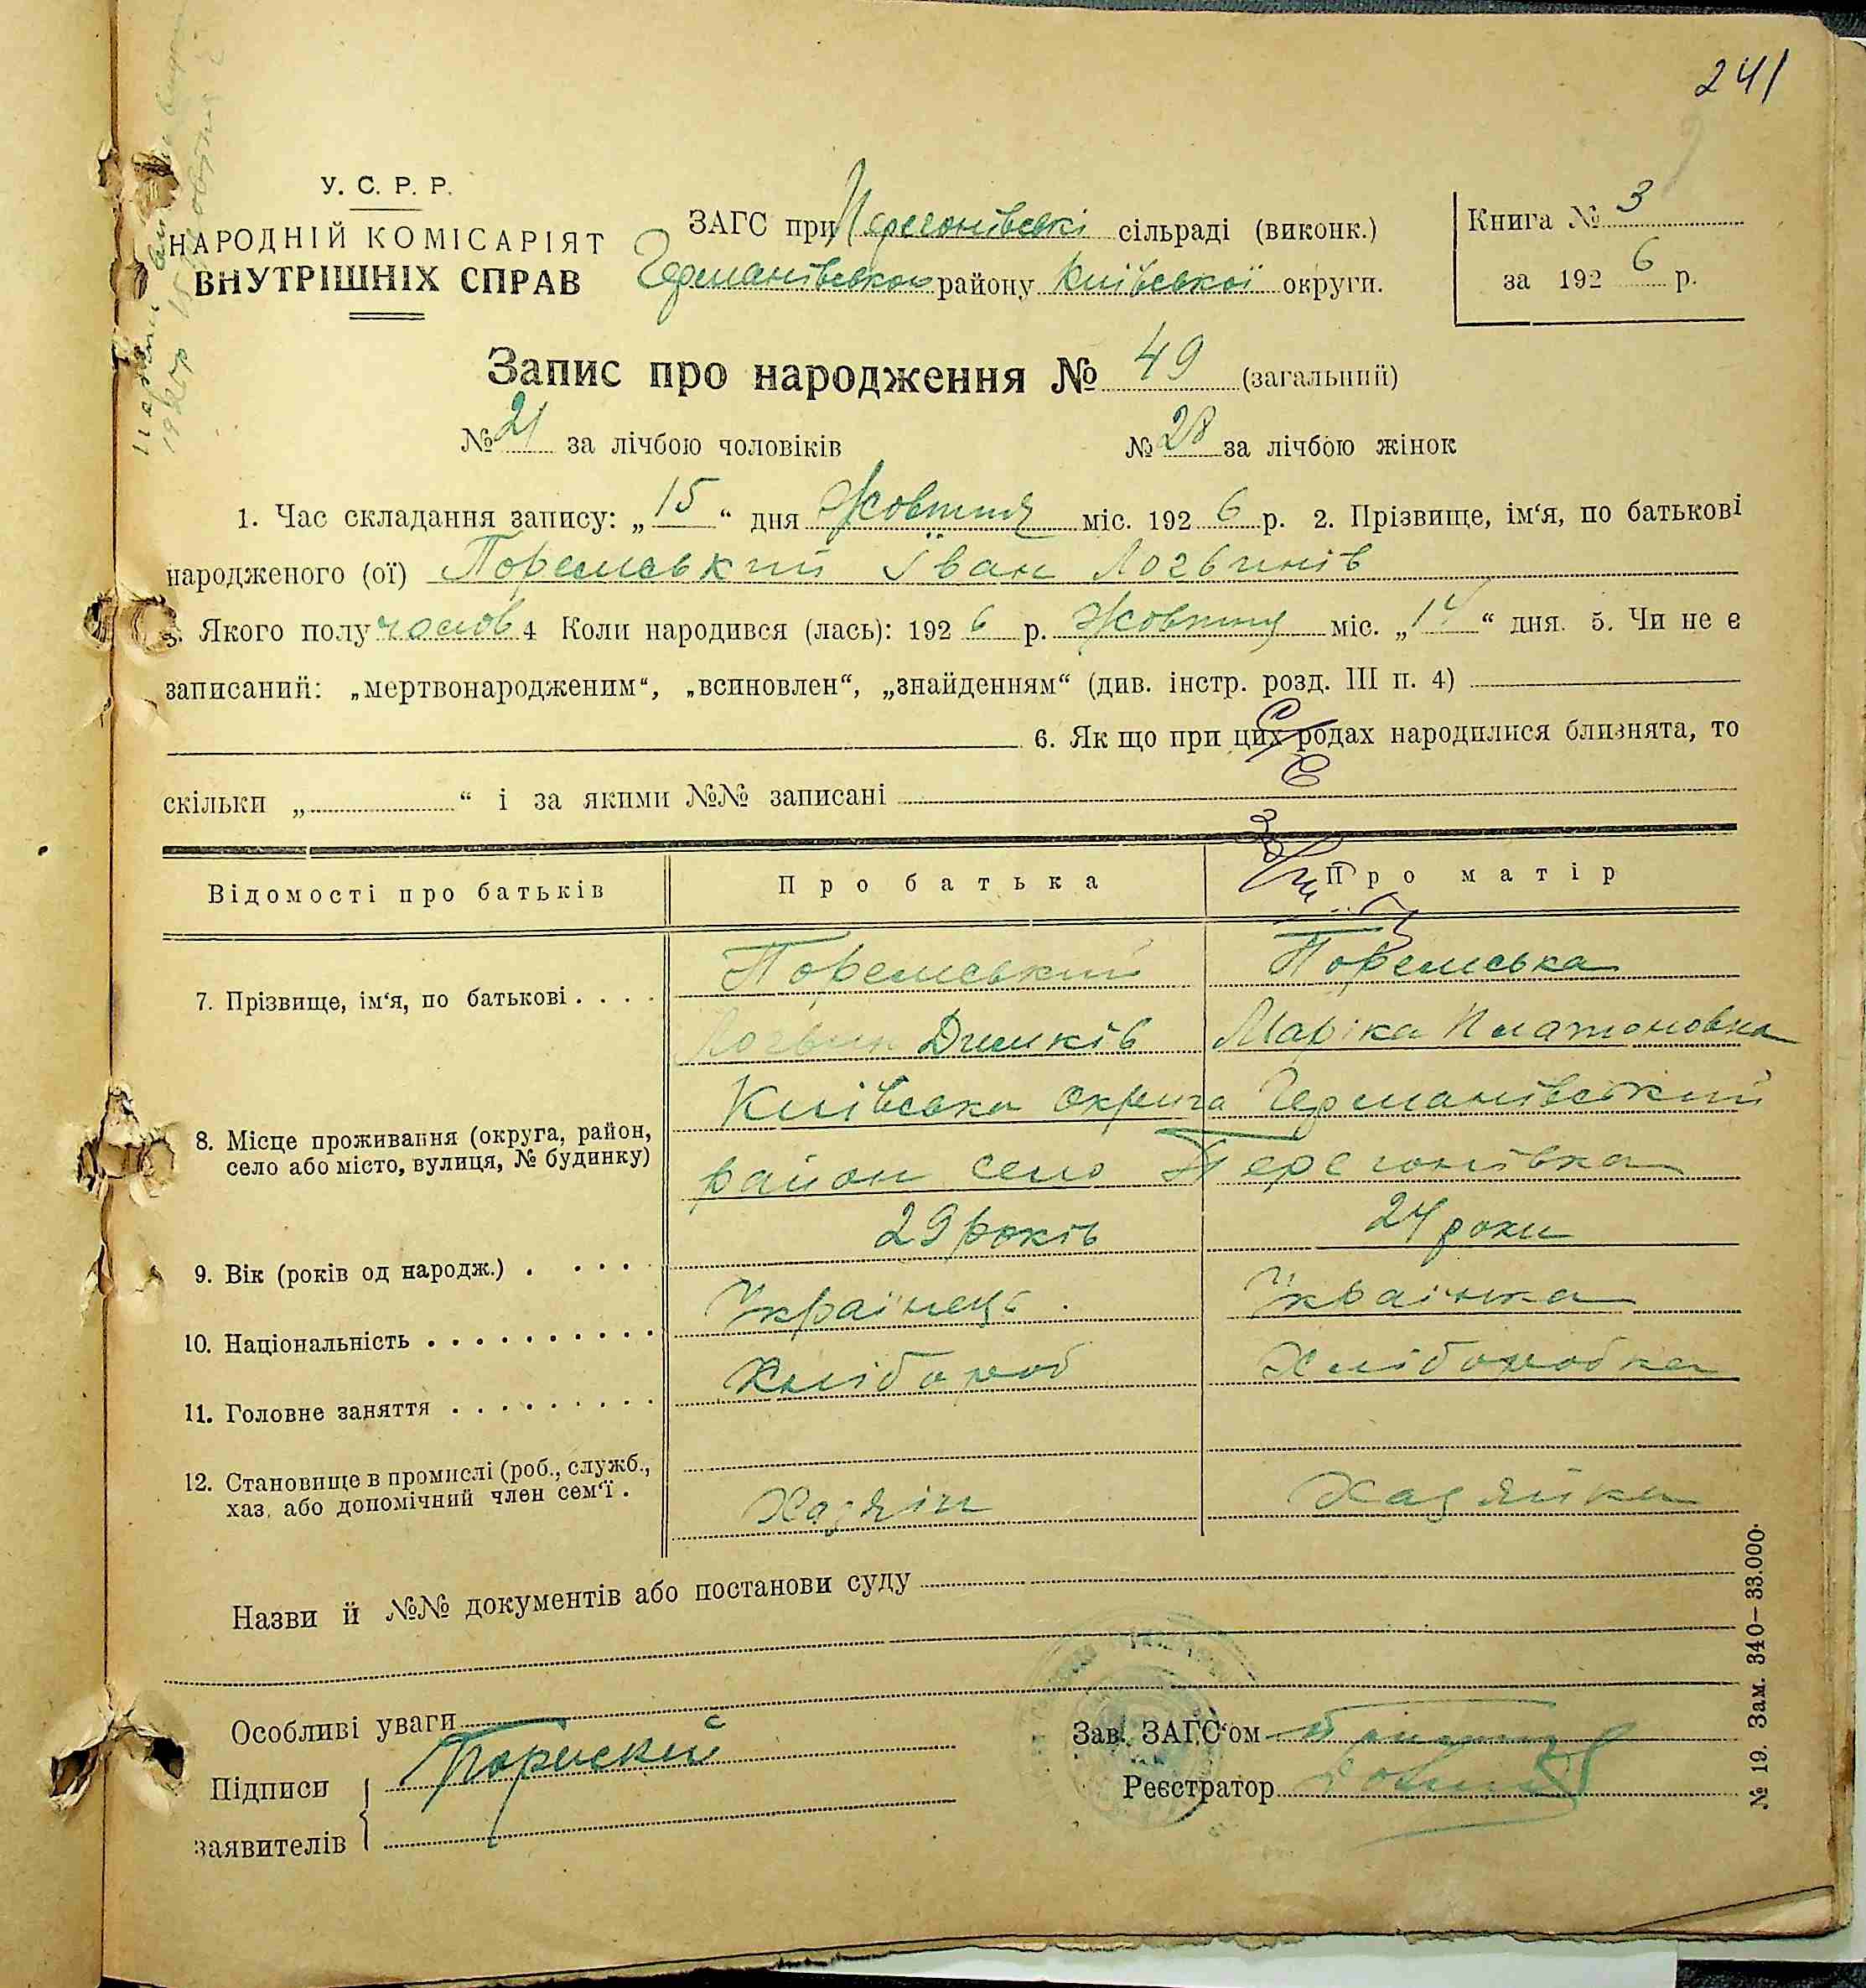 241
У. С. Р. Р.
НАРОДНІЙ КОМІСАРІЯТ
ВНУТРІШНІХ СПРАВ
ЗАГС при Перегонівскі сільраді (виконк.)
Германівськои району Київської округи.
Книга № 3
за 192 6 р.
Запис про народження № 49 (загальний)
№ 21 за лічбою чоловіків № 28 за лічбою жінок
1. Час складання запису: „ 15 “ дня Жовтня міс. 192 6 р. 2. Прізвище, ім‘я, по батькові
народженого (ої) Поремський Іван Логвинів
3. Якого полу чолов 4 Коли народився (лась): 192 6 р. Жовтня міс. „ 14 “ дня. 5. Чи не є
записаний: „мертвонародженим“, „всиновлен“, „знайденням“ (див. інстр. розд. III п. 4)
6. Як що при цих родах народилися близнята, то
скільки „ “ і за якими №№ записані
Відомості про батьків Про батька Про матір
7. Прізвище, ім‘я, по батькові . . . . Поремський Поремська
Логвин Димків Маріка Платоновна
8. Місце проживання (округа, район,
село або місто, вулиця, № будинку)
Київська округа Германівський
район село Перегонівка
9. Вік (років од народж.) . . . . 29 років 24 роки
10. Національність . . . . . . . . . . Украінець . Украінка
11. Головне заняття . . . . . . . . . Хлібороб Хліборобка
12. Становище в промислі (роб., служб.,
хаз. або допомічний член сем‘ї .
Хазяін Хазяйка
Назви й №№ документів або постанови суду
Особливі уваги
Підписи
заявителів
Зав. ЗАГС‘ом
Реєстратор
№ 19. Зам. 340–33.000.